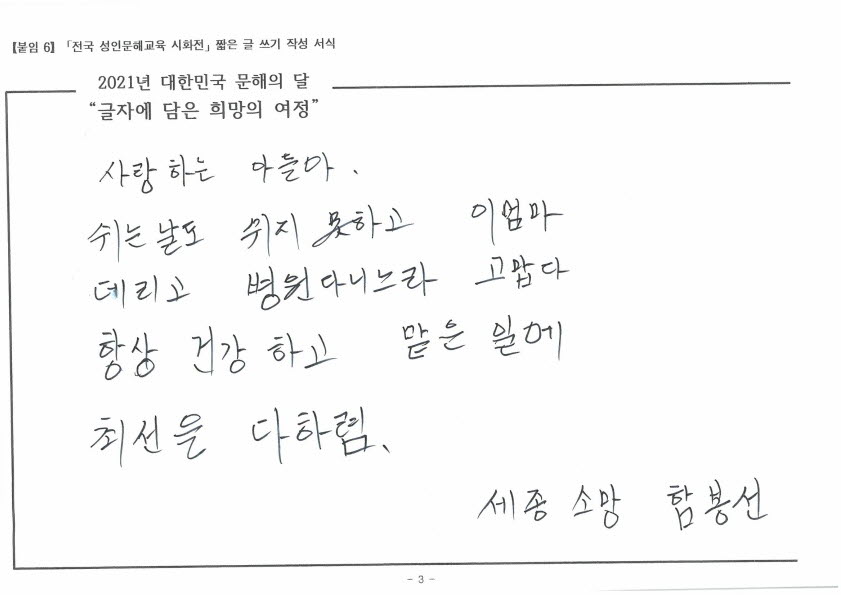 【붙임 6】 「전국 성인문해교육 시화전」 짧은 글 쓰기 작성 서식
2021년 대한민국 문해의 달
“글자에 담은 희망의 여정”
사랑하는 아들아.
쉬는날도 쉬지 못하고 이엄마
데리고 병원다니느라 고맙다
항상 건강하고 맡은 일에
최선을 다하렴.
세종 소망 함봉선
- 3 -